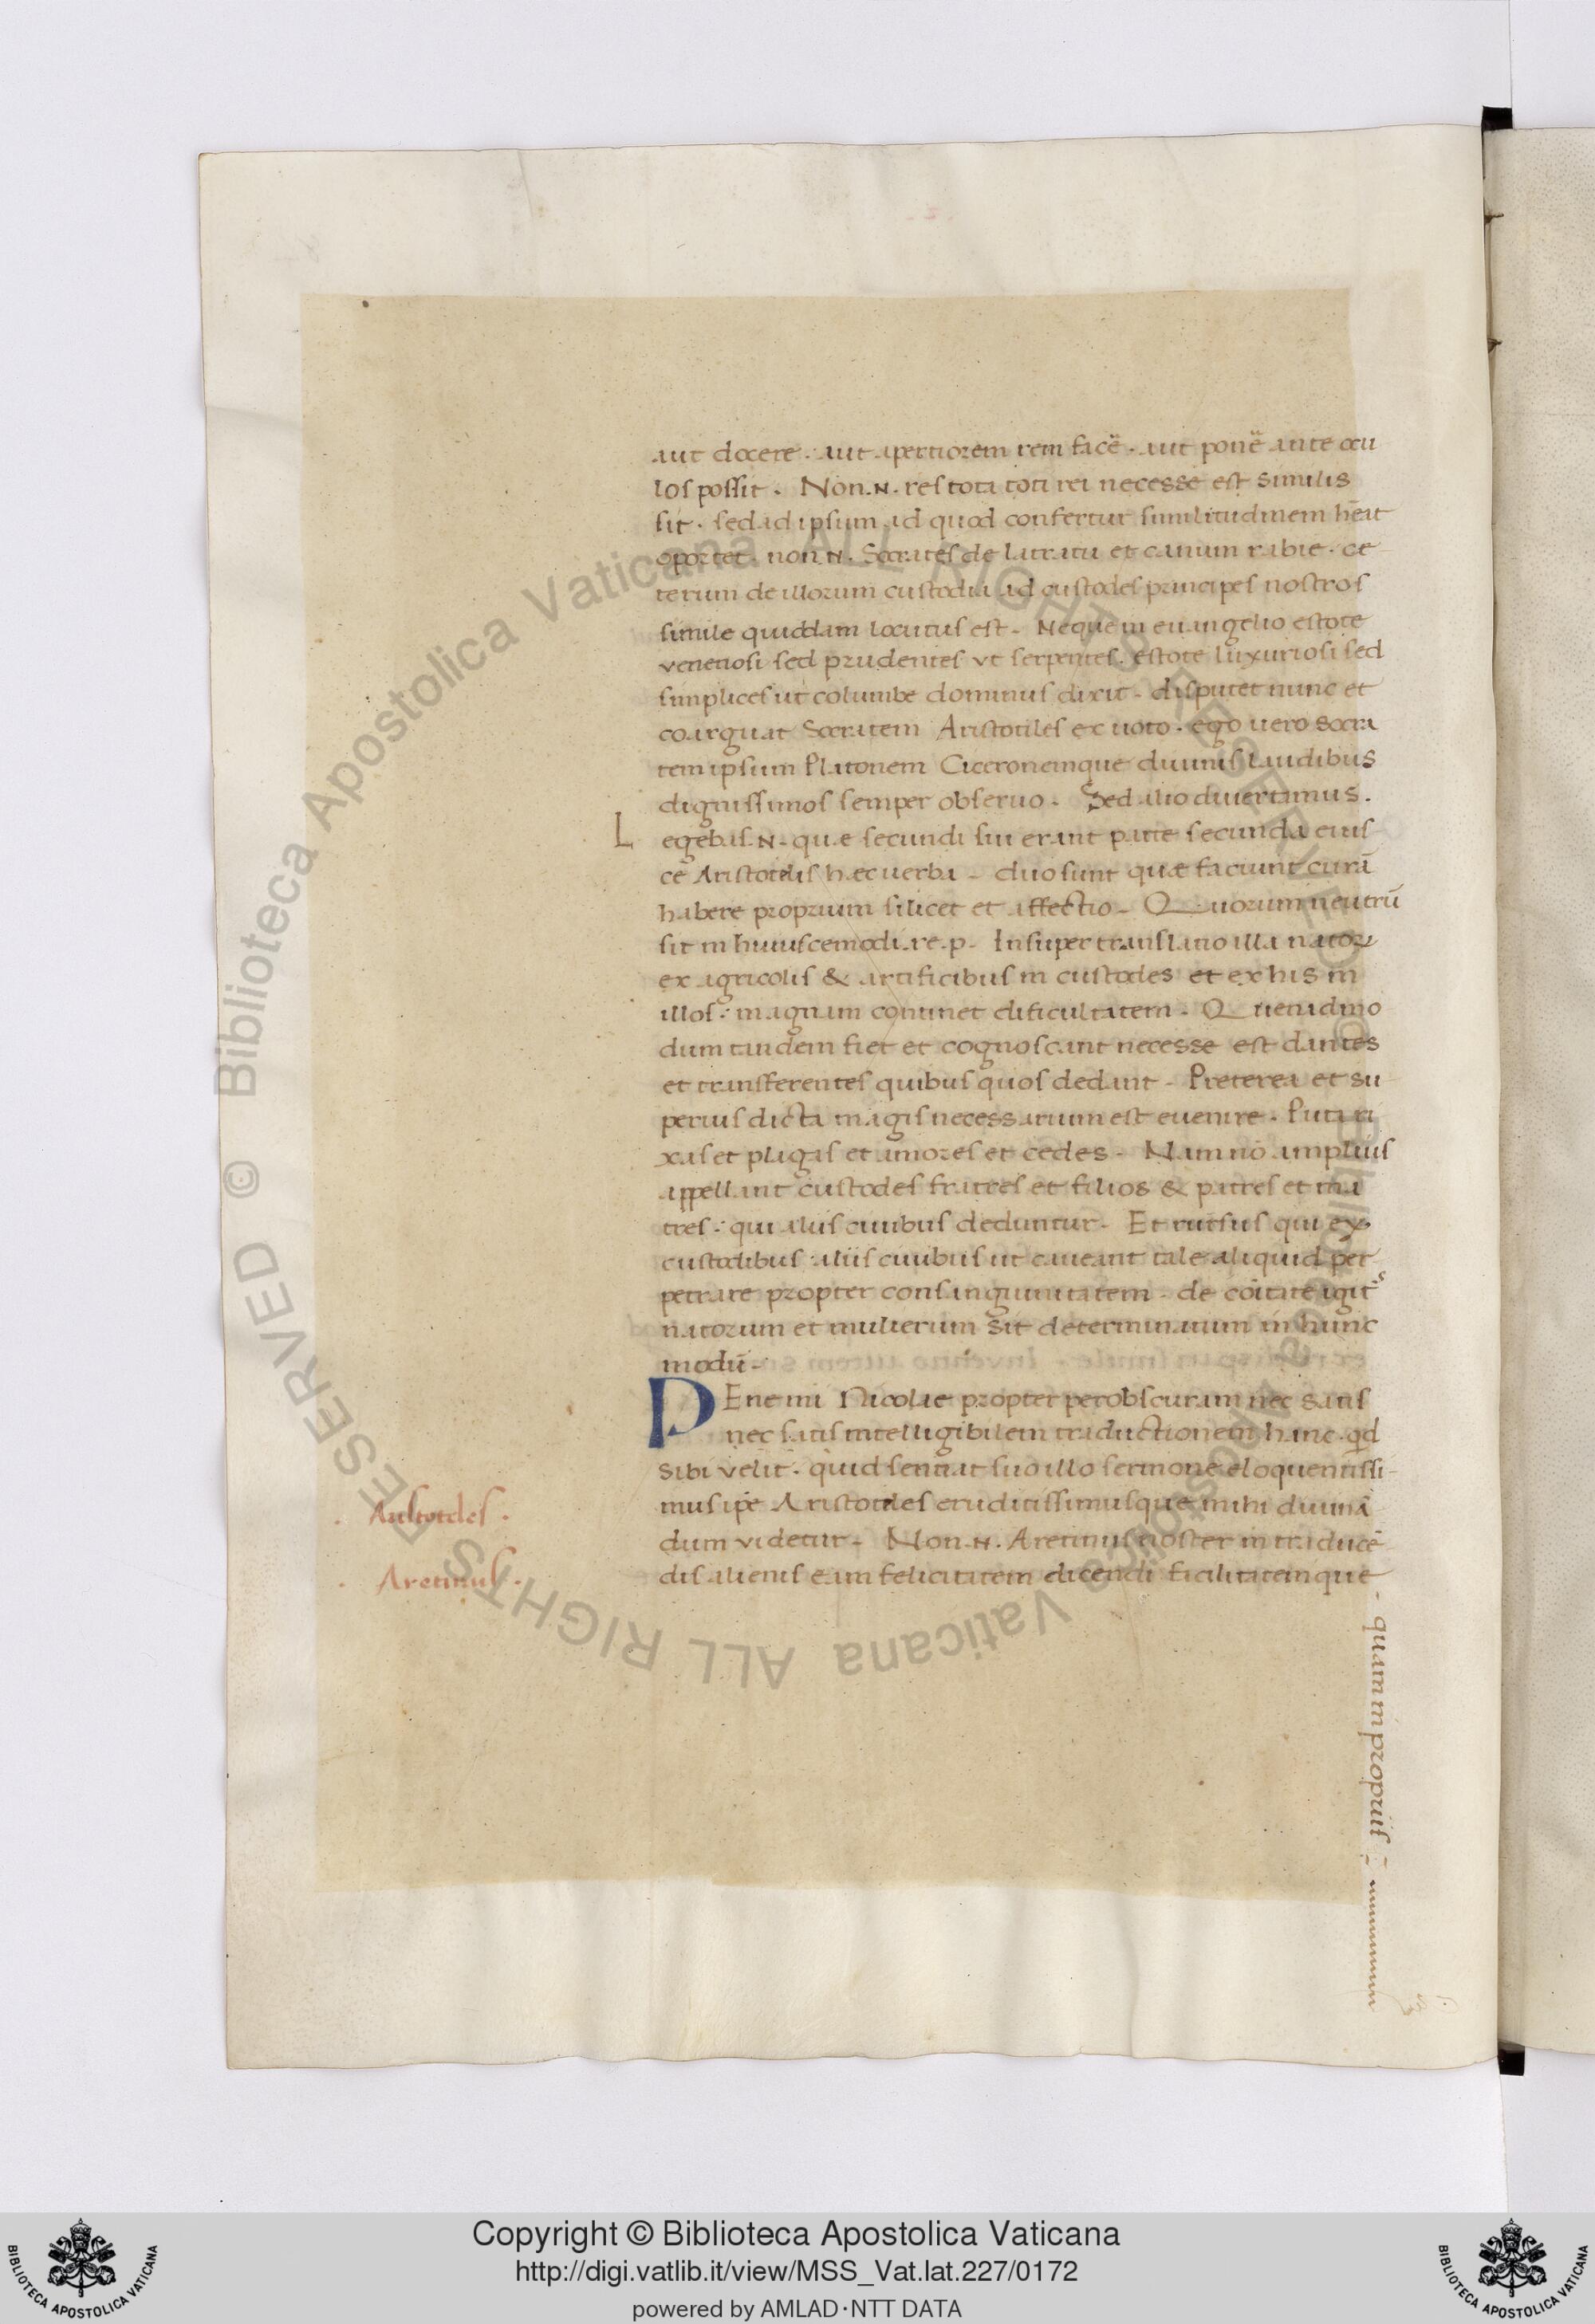 aut docere. aut apertiorem rem facē. aut ponē ante ocu
los possit. Non .N. res tota toti rei necesse est similis
sit. sed ad ipsum ad quod confertur similitudinem hēat
oportet. non .N. Socrates de latratu et canum rabie. ce
terum de illorum custodia ad custodes principes nostros
simile quiddam locutus est. Neque in euangelio estote
venenosi sed prudentes vt serpentes. estote luxuriosi sed
simplices ut columbe dominus dixit. disputet nunc et
coarguat Socratem Aristotiles ex uoto. ego uero Socra
tem ipsum Platonem Ciceronemque diuinis laudibus
dignissimos semper obseruo. Sed alio diuertamus.
Legebas .N. quæ secundi sui erant parte secunda eius
ce Aristotelis hæc uerba. duo sunt quæ faciunt curā
habere proprium silicet et affectio. Quorum neutrū
sit in huiuscemodi .re.p. Insuper translatio illa natoꝝ
ex agricolis & artificibus in custodes et ex his in
illos: magnam continet dificultatem. Quenadmo
dum tandem fiet et cognoscant necesse est dantes
et transferentes quibus quos dedant. Preterea et su
perius dicta magis necessarium est euenire. Puta ri
xas et plagas et amores et cedes. Nam nō amplius
appellant custodes fratres et filios & patres et ma
tres: qui aliis ciuibus deduntur. Et rursus qui ex
custodibus aliis ciuibus ut caueant tale aliquid per
petrare propter consanguinitatem. de cōitate igit
natorum et mulierum sit determinatum in hunc
modū.
PEne mi Nicolae propter perobscuram nec satis
nec satis intelligibilem traductionem hanc. qd
sibi velit. quid sentiat suo illo sermone eloquentissi
mus ipē Aristotiles eruditissimusque mihi diuinā
dum videtur. Non .N. Aretinus noster in traducē
dis alienis eam felicitatem dicendi facilitatemque
. quam in propriis
. Aristotiles .
. Aretinus .
© Biblioteca Apostolica Vaticana ALL RIGHTS RESERVED
© Biblioteca Apostolica Vaticana ALL RIGHTS RESERVED
Copyright © Biblioteca Apostolica Vaticana
http://digi.vatlib.it/view/MSS_Vat.lat.227/0172
powered by AMLAD·NTT DATA
BIBLIOTECA APOSTOLICA VATICANA
BIBLIOTECA APOSTOLICA VATICANA